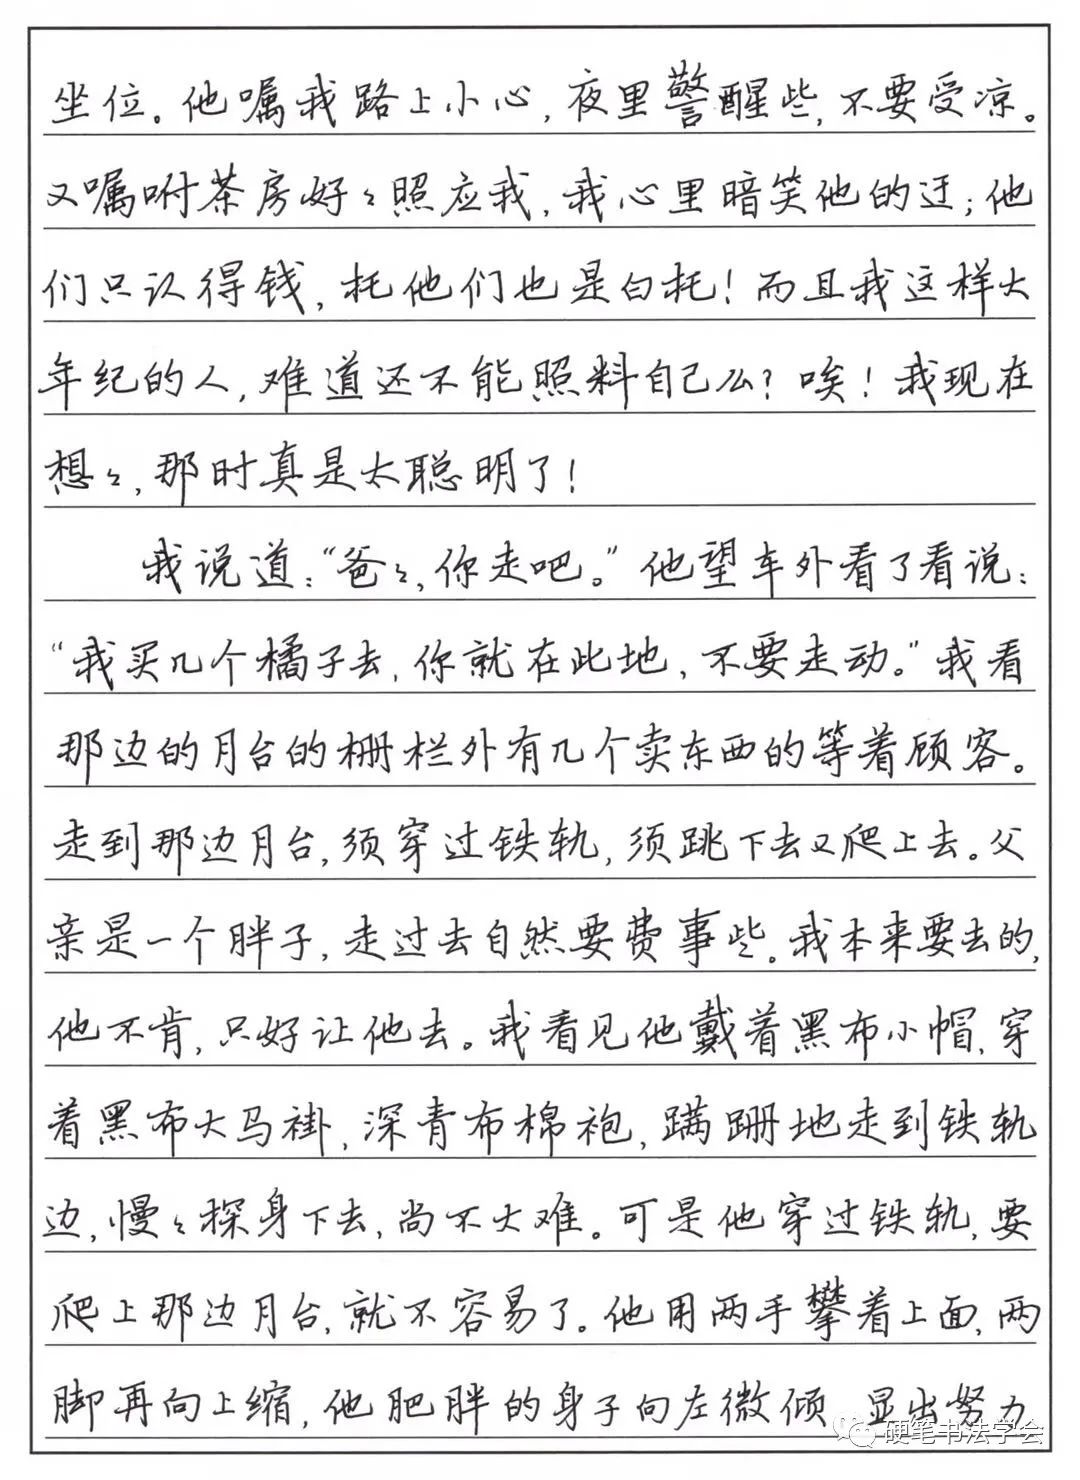 坐位。他嘱我路上小心,夜里警醒些,不要受凉。
又嘱咐茶房好々照应我,我心里暗笑他的迂;他
们只认得钱,托他们也是白托!而且我这样大
年纪的人,难道还不能照料自己么?唉!我现在
想々,那时真是太聪明了!
我说道:“爸々,你走吧。”他望车外看了看说:
“我买几个橘子去,你就在此地,不要走动。”我看
那边的月台的栅栏外有几个卖东西的等着顾客。
走到那边月台,须穿过铁轨,须跳下去又爬上去。父
亲是一个胖子,走过去自然要费事些。我本来要去的,
他不肯,只好让他去。我看见他戴着黑布小帽,穿
着黑布大马褂,深青布棉袍,蹒跚地走到铁轨
边,慢々探身下去,尚不大难。可是他穿过铁轨,要
爬上那边月台,就不容易了。他用两手攀着上面,两
脚再向上缩,他肥胖的身子向左微倾 显出努力
硬笔书法学会